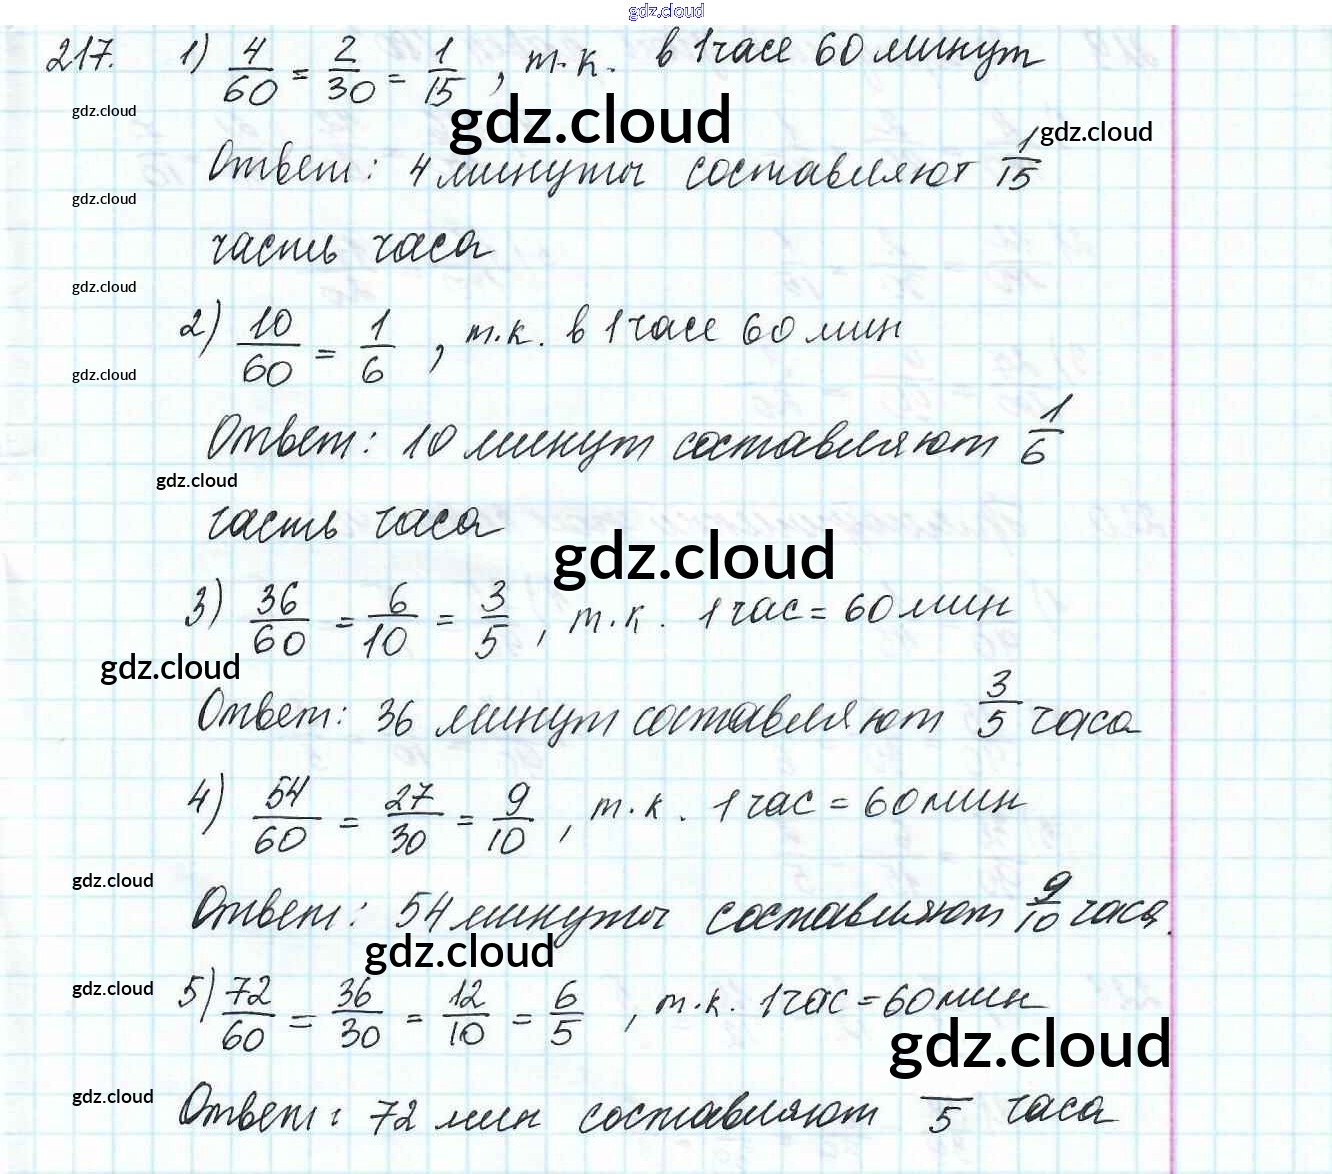 gdz.cloud
217. 1) 4/60 = 2/30 = 1/15, т.к. в 1 часе 60 минут
gdz.cloud
gdz.cloud
gdz.cloud
Ответ: 4 минуты составляют 1/15
gdz.cloud
часть часа
gdz.cloud
2) 10/60 = 1/6, т.к. в 1 часе 60 мин
gdz.cloud
Ответ: 10 минут составляют 1/6
gdz.cloud
часть часа
gdz.cloud
3) 36/60 = 6/10 = 3/5, т.к. 1 час = 60 мин
gdz.cloud
Ответ: 36 минут составляют 3/5 часа
4) 54/60 = 27/30 = 9/10, т.к. 1 час = 60 мин
gdz.cloud
Ответ: 54 минуты составляют 9/10 часа.
gdz.cloud
gdz.cloud
5) 72/60 = 36/30 = 12/10 = 6/5, т.к. 1 час = 60 мин
gdz.cloud
gdz.cloud
Ответ: 72 мин составляют /5 часа